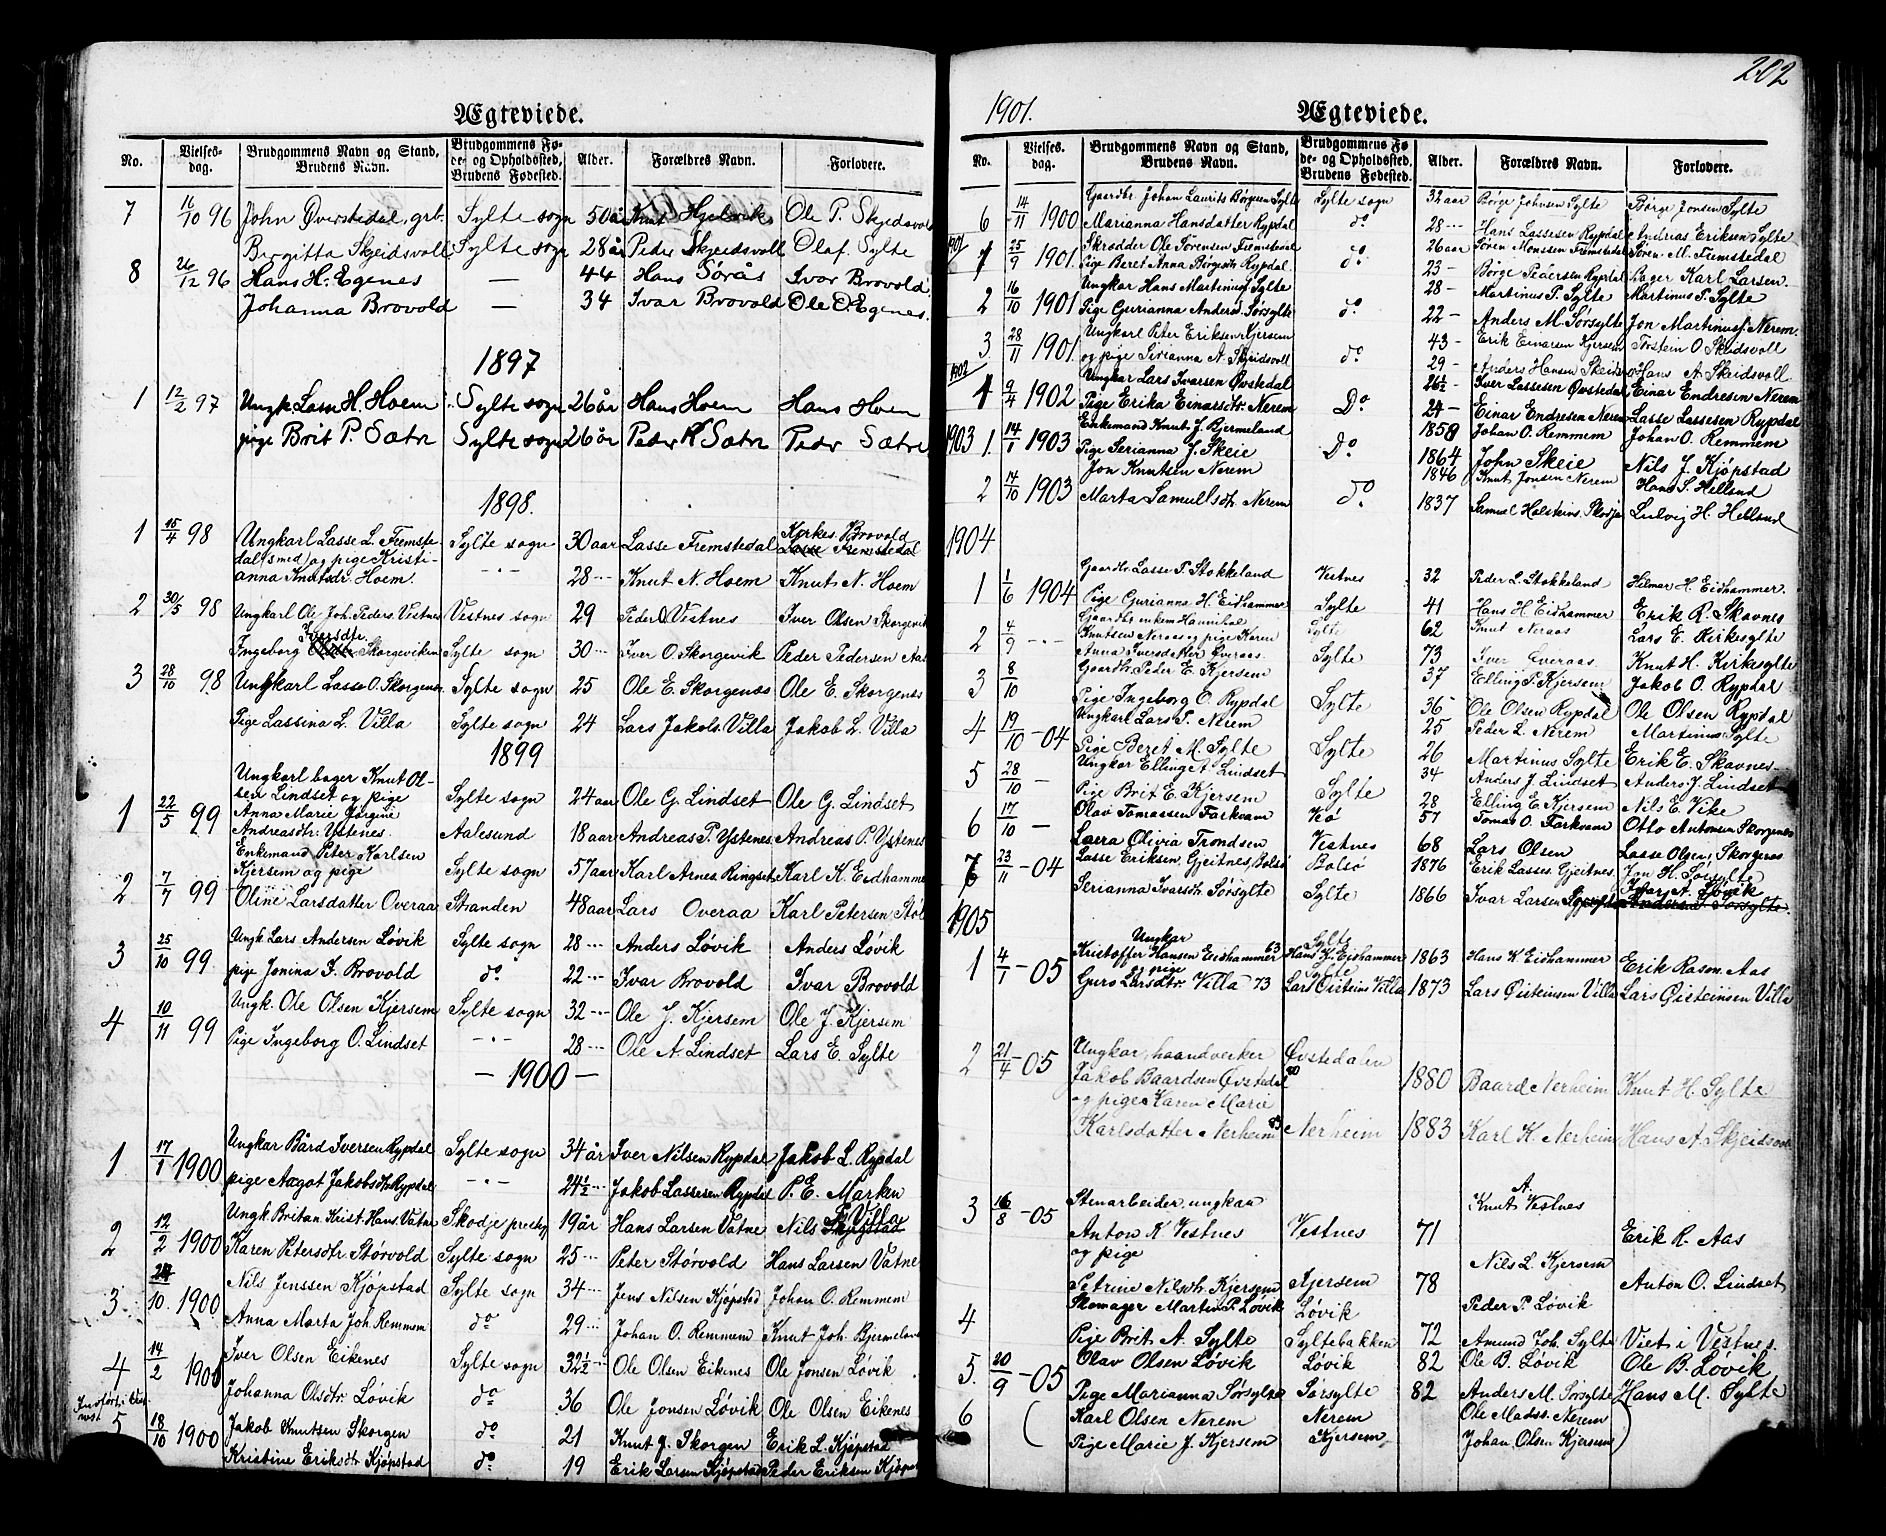 Ægteviede.
No. Vielses-dag. Brudgommens Navn og Stand, Brudens Navn. Brudgommens Fø-de- og Opholdssted, Brudens Fødested. Alder. Forældres Navn. Forlovere.
7 16/10 96 John Øverstedal, grb. Sylte sogn 50 år Knut Hjelviks Ole P. Skjeidsvoll
Birgitta Skjeidsvoll Sylte sogn 28 år Peder Skjeidsvoll Olaf Sylte
8 26/12 96 Hans H. Egenes — 44 Hans Sørås Ivar Brovold
Johanna Brovold — 34 Ivar Brovold Ole O. Egenes.
1897
1 12/2 97 Ungk. Lasse H. Hoem Sylte sogn 26 år Hans Hoem Hans Hoem
pige Brit P. Sætre Sylte sogn 26 år Peder K Sætre Peder Sætre
1898.
1 15/4 98 Ungkarl Lasse L. Fremste- Sylte sogn 30 aar Lasse Fremstedal Kyrkes. Brovold
dal (smed) og pige Kristi- Lasse Fremstedal
anna Knutsdr. Hoem. -"- 28 --- Knut N. Hoem Knut N. Hoem
2 30/5 98 Ungkarl Ole Joh. Peders. Vestnes Vestnes sogn 29 Peder Vestnes Iver Olsen Skorgevik
Iversdtr.
Ingeborg Skorgeviken Sylte sogn 30 --- Iver O. Skorgevik Peder Pedersen Aas
3 28/10 98 Ungkarl Lasse O. Skorgenes Sylte sogn 25 Ole E. Skorgenes Ole E. Skorgenes
Pige Lassina L. Villa Sylte sogn 24 Lars Jakobs. Villa Jakob L. Villa
1899
Ungkarl bager Knut Ol-
1 22/5 99 sen Lindset og pige Sylte sogn 24 aar Ole G. Lindset Ole G. Lindset
Anna Marie Jørgine
Andreasdtr. Ystenes Aalesund 18 aar Andreas P. Ystenes Andreas P. Ystenes
Enkemand Peter Karlsen
2 7/7 99 Kjersem og pige Sylte sogn 57 aar Karl Arnes. Ringset Karl K. Eidhammer
Oline Larsdatter Overaa Stranden 48 aar Lars Overaa Karl Petersen
3 25/10 99 Ungk. Lars Andersen Løvik Sylte sogn 28 --- Anders Løvik Anders Løvik
pige Jonina I. Brovold do 22 --- Ivar Brovold Ivar Brovold
4 10/11 99 Ungk. Ole Olsen Kjersem Sylte sogn 32 --- Ole J. Kjersem Ole J. Kjersem
Pige Ingeborg O. Lindset -"- 28 --- Ole A. Lindset Lars E. Sylte
— 1900 —
1 17/1 1900 Ungkar Bård Iversen Rypdal Sylte sogn 34 år Iver Nilsen Rypdal Jakob L. Rypdal
pige Aagot Jakobsdtr Rypdal -"- 24½ --- Jakob Lassesen Rypdal P. E. Marken
2 12/2 1900 Ungk. Britan Krist. Hans. Vatne Skodje prestg. 19 år Hans Larsen Vatne Nils E. Villa
Karen Petersdtr. Størvold Sylte sogn 25 --- Peter Størvold Hans Larsen Vatne
3 24/10 1900 Nils Jenssen Kjøpstad Sylte sogn 34 --- Jens Nilsen Kjøpstad Johan O. Remmem
Anna Marta Joh. Remmem do 29 --- Johan O. Remmem Knut Joh. Bjermeland
4 14/2 1900 Iver Olsen Eikenes Sylte sogn 32½ -- Ole Olsen Eikenes Ole Jonsen Løvik
Johanna Olsdtr. Løvik do 36 Ole Jonsen Løvik Ole Olsen Eikenes
5 18/10 1900 Jakob Knutsen Skorgen do 21 Knut J. Skorgen Erik L. Kjøpstad
Kristine Eriksdtr Kjøpstad do 19 Erik Larsen Kjøpstad Peder Eriksen Kjøpst
202
1901.
Ægteviede.
No. Vielses-dag. Brudgommens Navn og Stand, Brudens Navn. Brudgommens Fø-de- og Opholdssted, Brudens Fødested. Alder. Forældres Navn. Forlovere.
6 14/11 1900 Gaardbr. Johan Laurits Børgesen Sylte Sylte sogn 32 aar Børge Johnsen Sylte Børge Jonsen Sylte
Marianna Hansdatter Rypdal do 28 --- Hans Lassesen Rypdal Andreas Eriksen Sylte
1901 1 25/9 1901. Skrædder Ole Sørensen Fremstedal 26 aar Søren Monssen Fremstedal Søren M. Fremstedal
Pige Beret Anna Børgesdtr Rypdal. do 23 - Børge Pedersen Rypdal Bager Karl Larsen
2 16/10 1901 Ungkar Hans Martinus. Sylte 28 - Martinus P. Sylte Martinus P. Sylte
Pige Gurianna Anders. Sørsylte do 22 - Anders M. Sørsylte Jon Martinuss. Nerem.
3 28/11 1901. Ungkarl Peter Eriksen Kjersem 43 - Erik Einarsen Kjersem Torstein O. Skeidsvoll
og pige Sirianna A. Skeidsvoll do 29 - Anders Hansen Skeidsv Hans A. Skeidsvoll.
1902 1 9/4 1902 Ungkar Lars Ivarsen Øvstedal 26½ - Iver Lassesen Øvstedal Einar Endresen Nerem
Pige Erika Einarsdtr. Nerem Do 24 - Einar Endresen Nerem Lasse Lassesen Rypdal
1903 1. 14/1 1903 Enkemand Knut J. Bjermeland 1859 Johan O. Remmem Johan O. Remmem
Pige Serianna J. Skeie Do 1864 John Skeie Nils J. Kjøpstad
2 14/10 1903 Jon Knutsen Nerem 1846 Knut Jonsen Nerem Hans S. Helland
Marta Samuelsdtr. Nerem do 1837 Samuel Halsteins. Skodje Ludvig H. Helland
1904
1 1/6 1904 Gaardbr. Lasse P. Stokkeland Vestnes 32 Peder L. Stokkeland Hilmar H. Eidhammer.
Pige Gurianna H. Eidhammer Sylte 41 Hans H. Eidhammer Erik R. Skavnes
2 4/9 -"- Gaardbr. enkem Hannibal
Knutsen Neraas og pige Karen Sylte 62 Knut Neraas Lars E. Kirkesylte
Anna Iversdatter Øveraas Sylte 73 Iver Øveraas Knut H. Kirkesylte
3 8/10 Gaardbr. Peder E. Kjersem 37 Elling P. Kjersem Jakob O. Rypdal
Pige Ingeborg O. Rypdal Sylte 36 - Ole Olsen Rypdal Ole Olsen Rypdal
4 19/10 -04 Ungkarl Lars P. Nerem 25 Peder L. Nerem Martinus Sylte
Pige Beret M. Sylte Sylte 26 Martinus Sylte Erik E. Skavnes
5 28/10 — Ungkar Elling A. Lindset 34 Anders J. Lindset Anders J. Lindset
Pige Brit E. Kjersem Sylte 28 Elling E. Kjersem Nils E. Vike
6 17/10 — Olav Tomassen Farkvam Veø 57 Tomas O. Farkvam Otto Antonsen Skorgenes
Laura Olivia Trondsen Vestnes 68 Lars Olsen Lasse Olsen Skorgenes
7 23/11 -04 Lasse Eriksen Gjeitnes, Bolsø Bolsø 1876 Erik Lasses. Gjeitnes Jon H. Sørsylte
Serianna Ivarsdtr. Sørsylte Sylte 1866 Ivar Larsen Sørsylte Ivar A. Løvik
Anders Sørsylte.
1905
Ungkar Sylte
1 4/1 -05 Kristoffer Hansen Eidhammer 63 Hans K. Eidhammer 1863 Hans K Eidhammer Erik Rasm. Aas
og pige Sylte
Guro Larsdtr. Villa 73 Lars Øisteins Villa 1873 Lars Øisteinsen Villa Lars Øisteinsen Villa
2 21/4 -05 Ungkar, haandverker Øvstedalen
Jakob Baardsen Øvstedal 80 1880 Baard Nerheim Knut H. Sylte
og pige Karen Marie
Karlsdatter Nerheim 83 Nerheim 1883 Karl K. Nerheim Hans A. Skjeidsvoll
3 16/8 -05 Stenarbeider, ungkar Knut A. Vestnes
Anton K. Vestnes Vestnes 71 Erik R. Aas
og pige Nils L. Kjersem
Petrine Nilsdtr. Kjersem Kjersem 78 Anton O. Lindset
4 Skomager Martin P. Løvik Løvik Peder P. Løvik
Pige Brit A. Sylte Syltebakken 72 Amund Joh. Sylte Viet i Vestnes.
5. 20/9 -05 Olav Olsen Løvik Løvik 82 Ole B. Løvik Ole B. Løvik
Pige Marianna Sørsylte Sørsylte 82 Anders M. Sørsylte Hans M. Sylte
6 ( Karl Olsen Nerem Nerem Ole Madss. Nerem
Pige Marie J. Kjersem Kjersem Johan Olsen Kjersem )